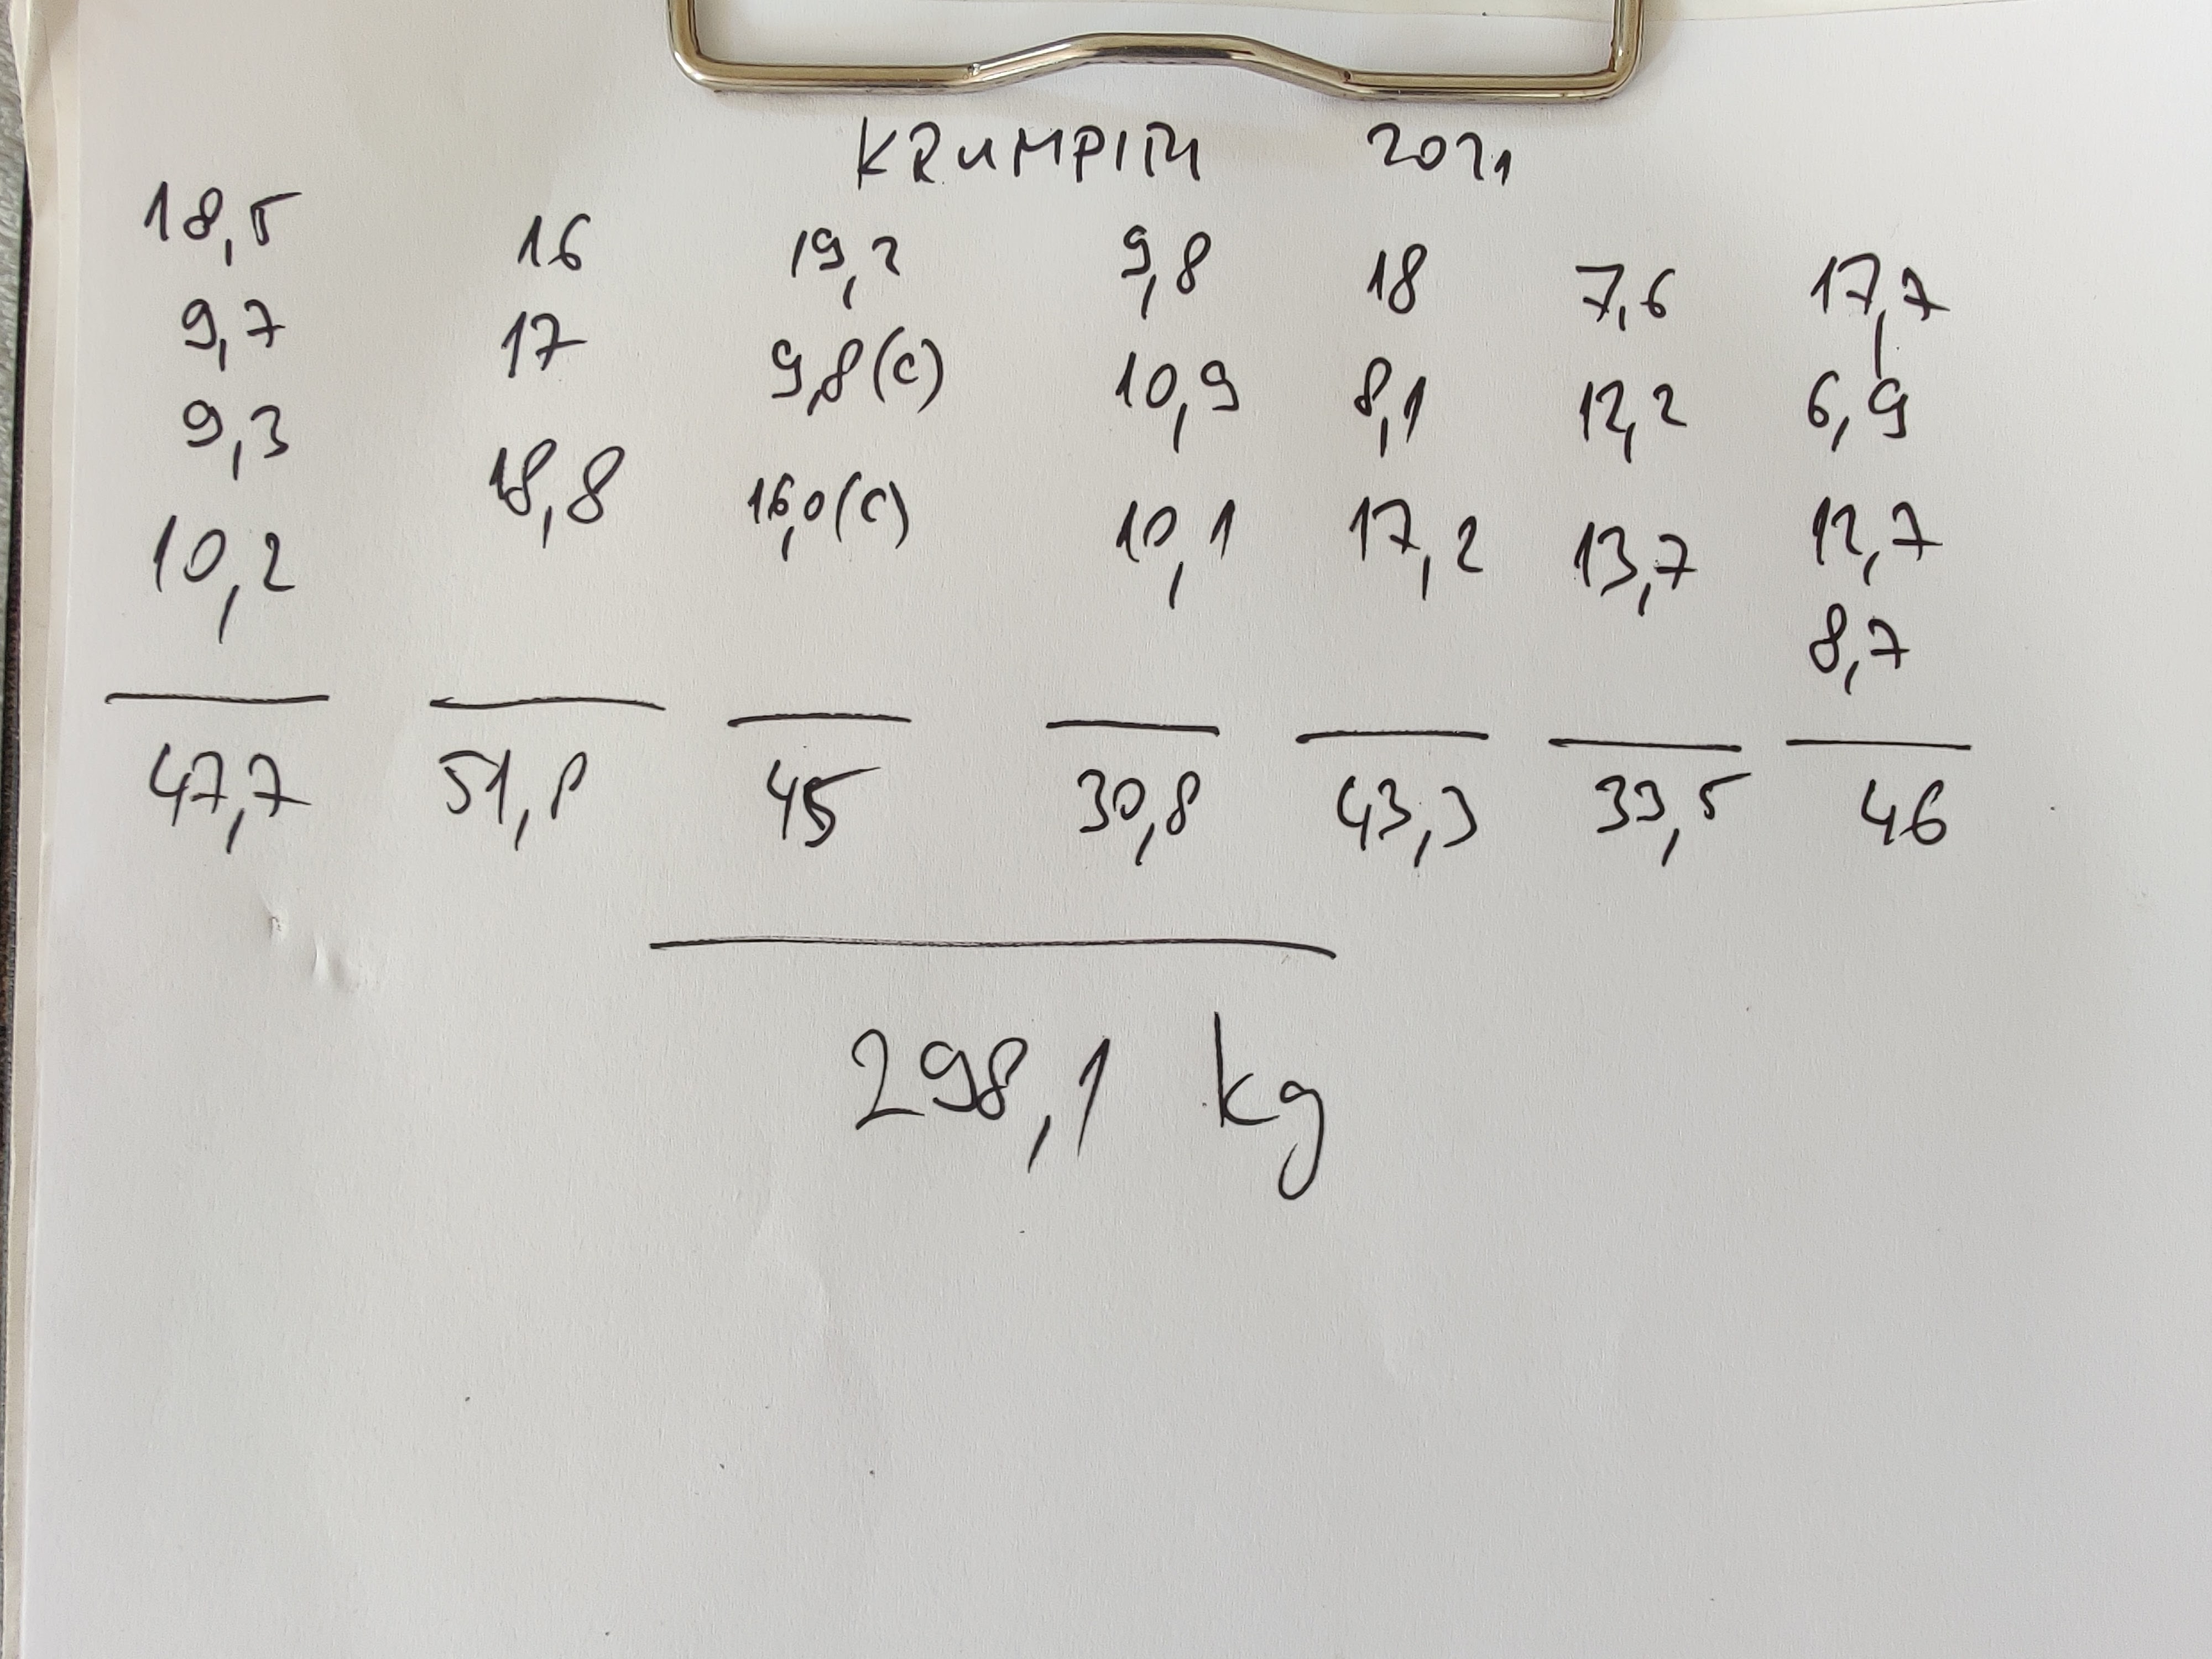 KRUMPIRI 2021
18,5 16 19,2 9,8 18 7,6 17,7
9,7 17 9,8(C) 10,9 8,1 12,2 6,9
9,3 18,8 16,0(C) 10,1 17,2 13,7 12,7
10,2 8,7
47,7 51,8 45 30,8 43,3 33,5 46
298,1 kg